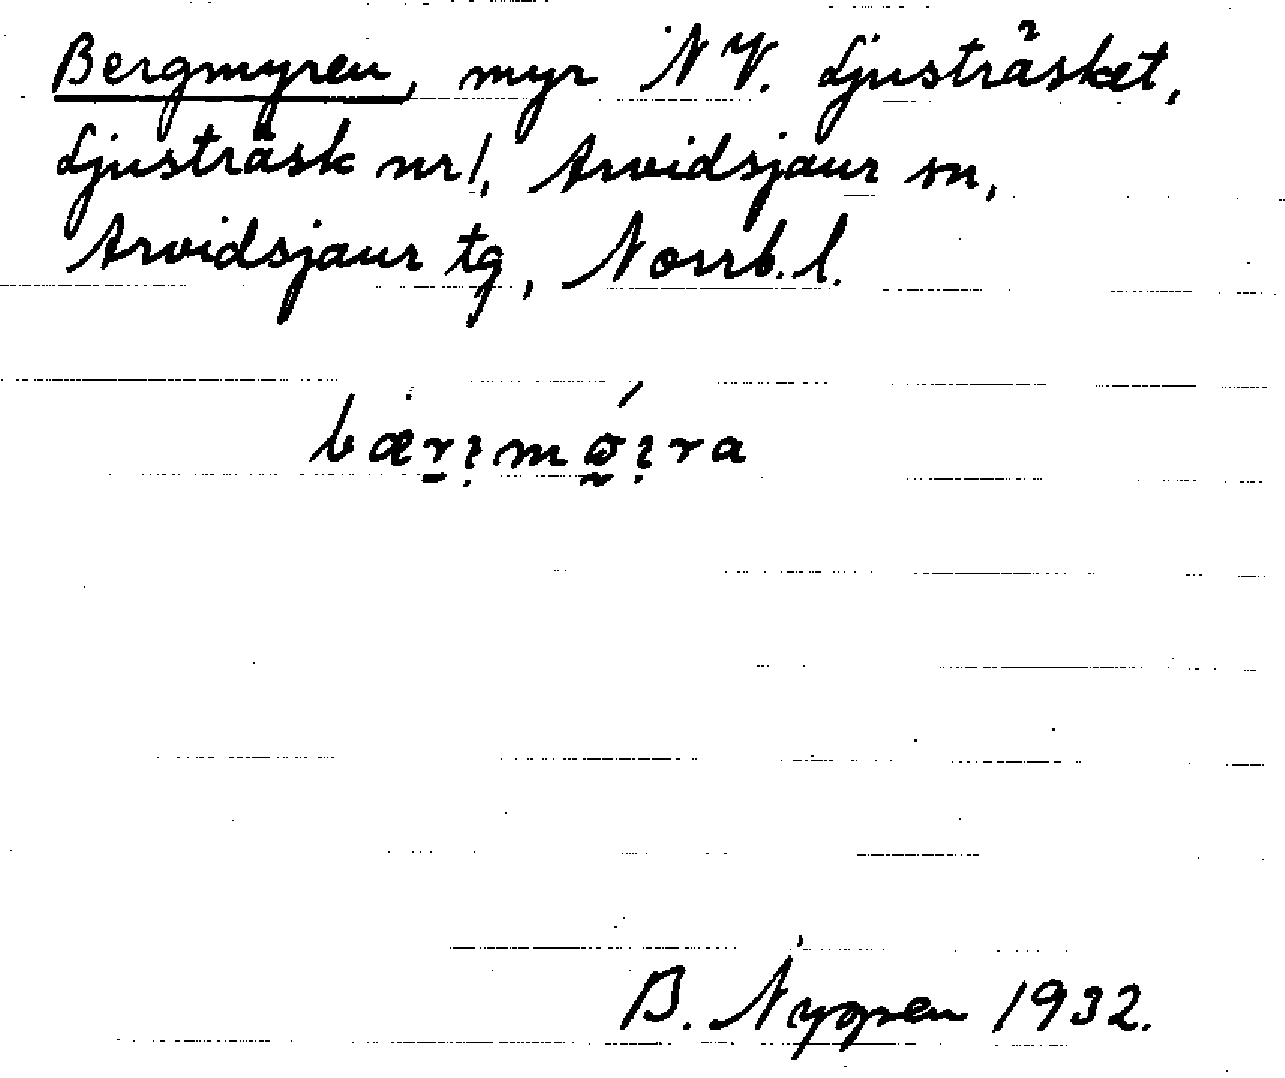 Bergmyren, myr NV. Ljusträsket,
Ljusträsk nr 1, Arvidsjaur sn,
Arvidsjaur tg, Norrb. l.
B. Nygren 1932.